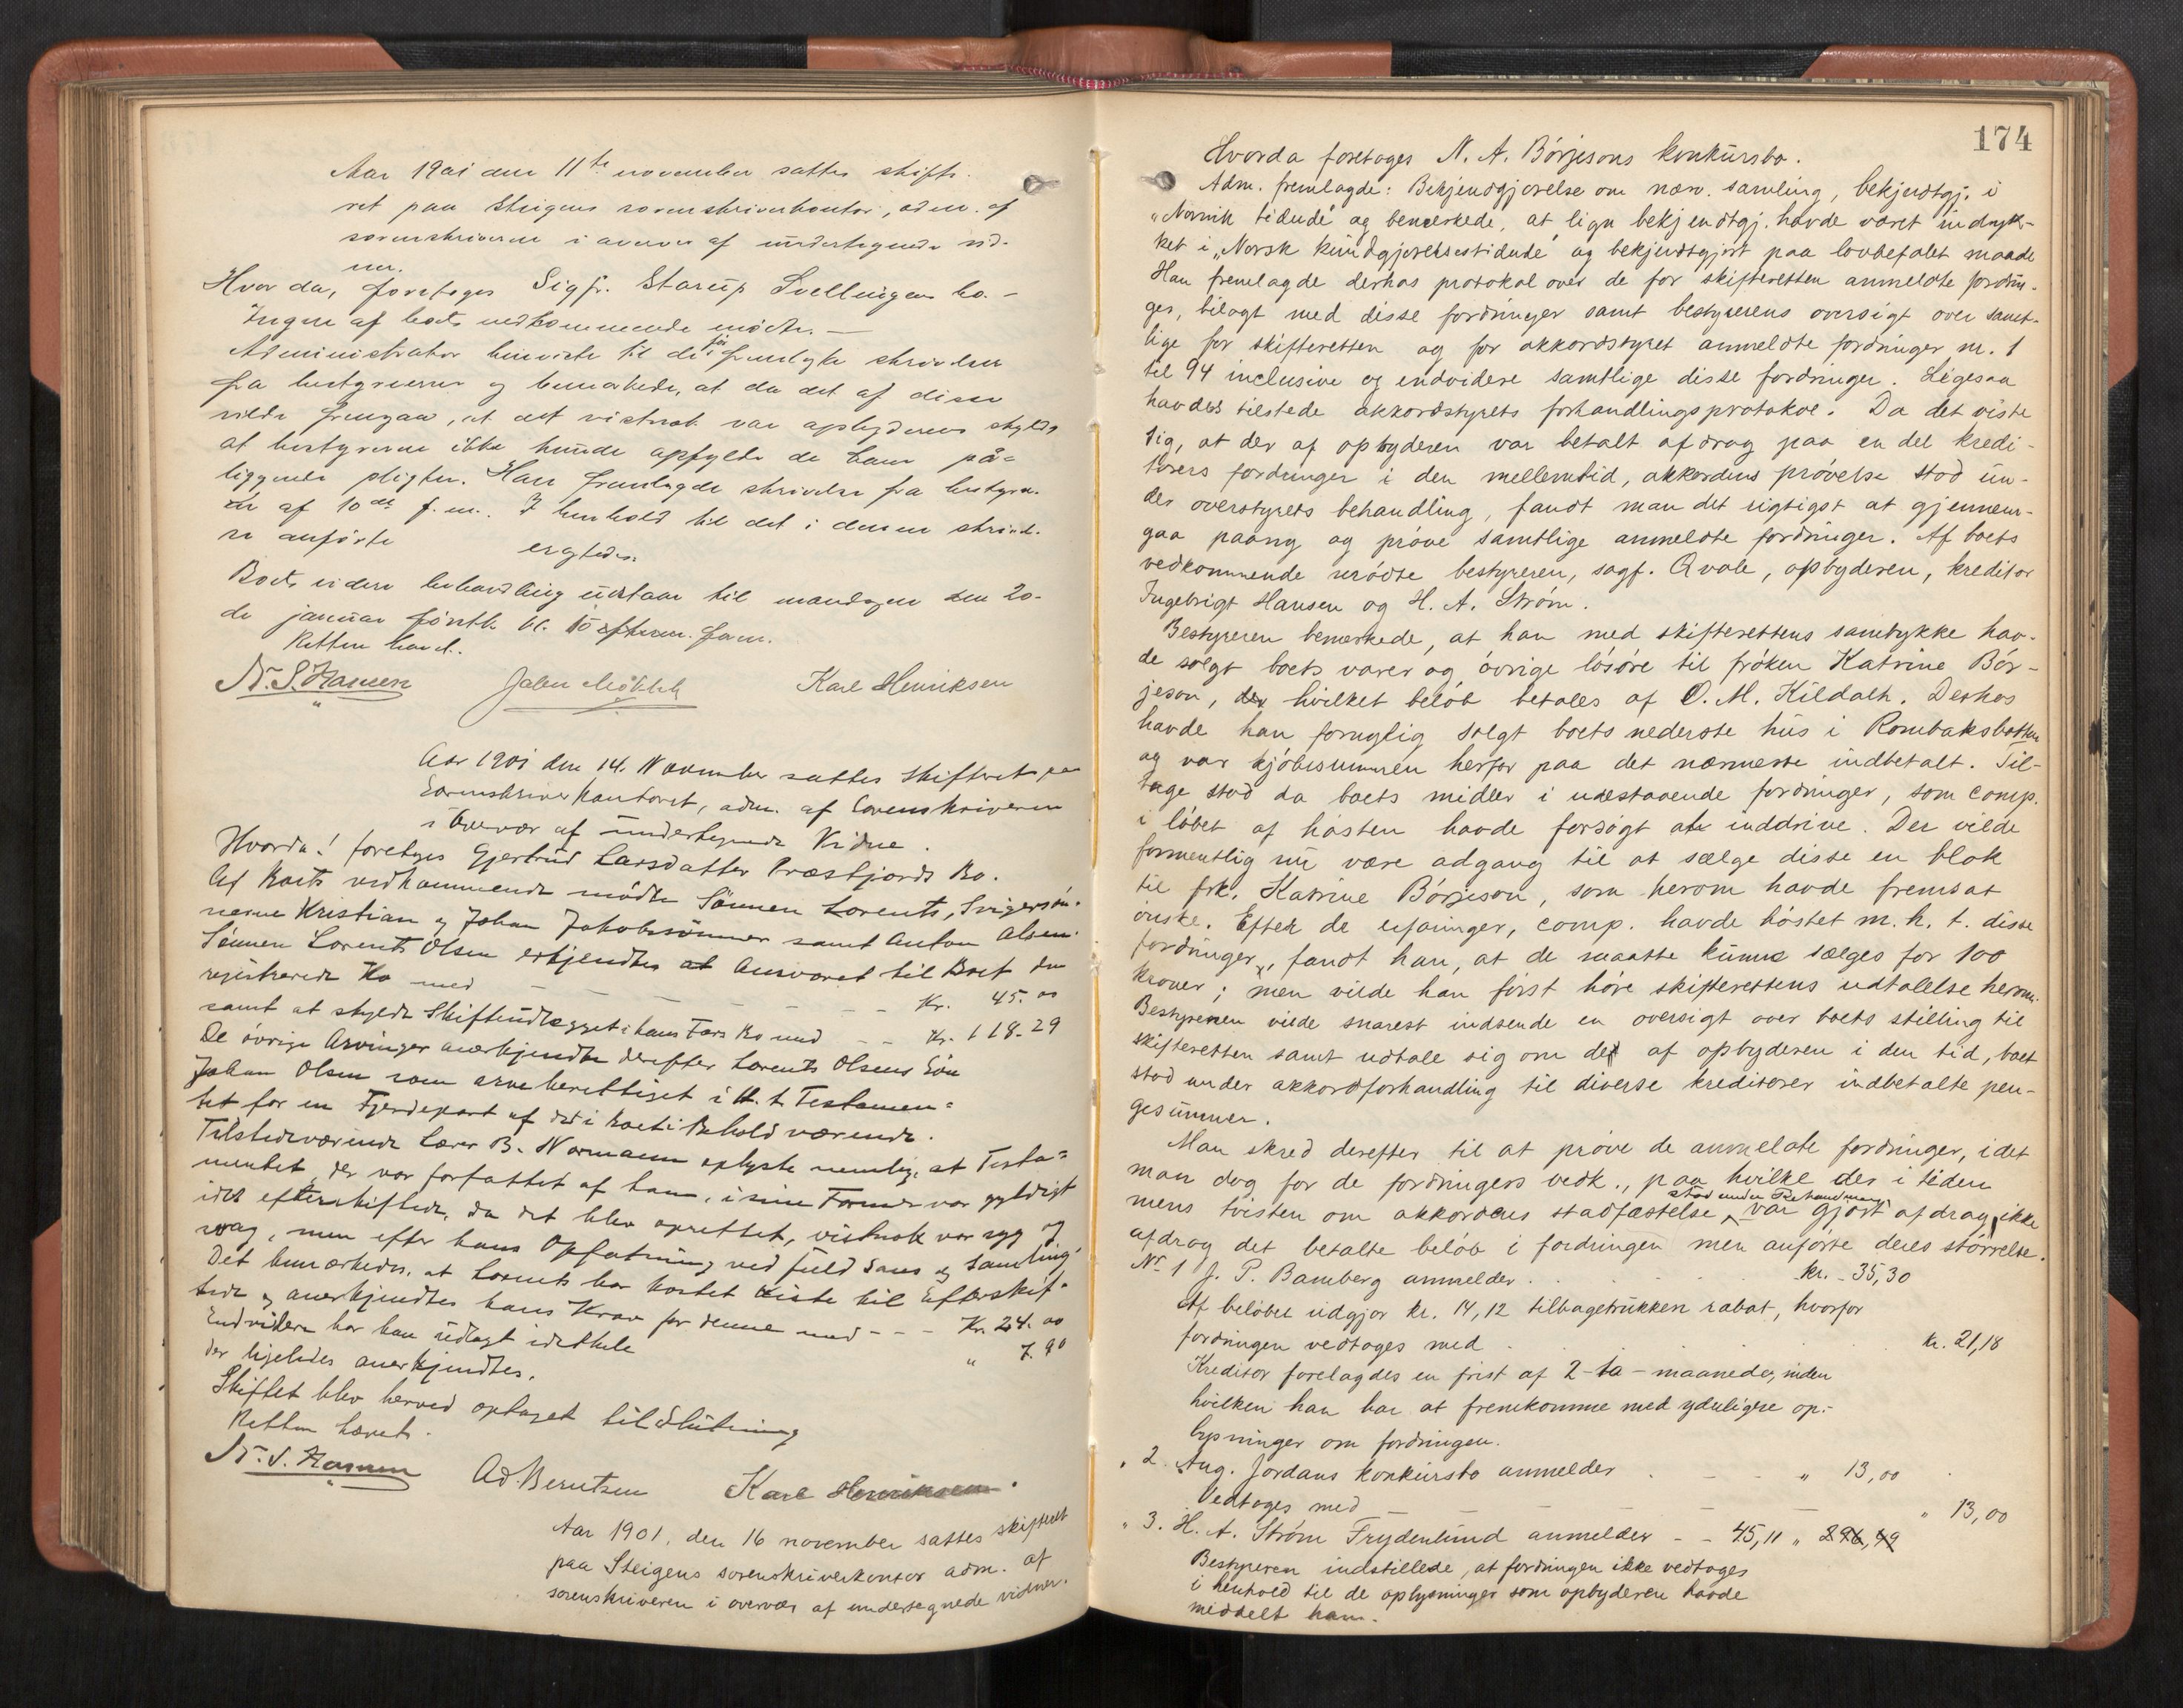 Aar 1901 den 11te november sattes skifte-
ret paa Steigens sorenskriverkontor, adm. af
sorenskriveren i overvær af undertegnede vid-
ner.
Hvor da, foretoges Sigfr. Starup Svellingens bo. -
Ingen af boets vedkommende mødte. —
Administrator henviste til de før fremlagte skrivelser
fra bestyreren og bemærkede, at da det af disse
vilde fremgaa, at det vistnok var opbyderens skyld
at bestyreren ikke kunde opfylde de ham på-
liggende pligter. Han fremlagde skrivelse fra bestyre-
ren af 10de f. m. I henhold til det i denne skrivel-
se anførte
eragtedes:
Boets videre behandling udstaar til mandagen den 20-
de januar førstk. kl. 10 form.
Retten hævet.
N. S. Hansen Karl Henriksen
Aar 1901 den 14. November sattes Skifteret paa
Sorenskriverkontoret, adm. af Sorenskriveren
i Overvær af undertegnede Vidne.
Hvorda! foretoges Gjertrud Larsdatter Præstjords Bo.
Af Boets vedkommende mødte Sønnen Lorents, Svigersøn-
nerne Kristian og Johan Jakobsønner samt Anton Olsen.
Sønnen Lorents Olsen erkjendtes at Ansvaret til Boet den
registrerede Ko med — — — — — Kr. 45.00
samt at skylde Skifteudlægget i hans Fars Bo med — — Kr. 118.29
De øvrige Arvinger anerkjendte derefter Lorents Olsens Søn
Johan Olsen som arveberettiget i H. t. Testamen-
tet for en Fjerdepart af det i Boet i Behold værende.
Tilstedeværende Lærer B. Normann oplyste nemlig, at Testa-
mentet, der var forfattet af ham, i sine Former var gyldigt
idet efterskiftede, da det blev oprettet, vistnok var syg og
svag, men efter hans Opfatning ved fuld Sans og Samling
Det bemærkedes, at Lorents har kostet Kiste til Efterskif-
tede og anerkjendtes hans Krav for denne med - - - Kr. 24.00
Endvidere har han udlagt idethele " 7.90
der ligeledes anerkjendtes.
Skiftet blev herved optaget til Slutning
Retten hævet.
N. S. Hansen Ad. Berntsen Karl Henriksen.
Aar 1901, den 16 november sattes skifteret
paa Steigens sorenskriverkontor adm. af
sorenskriveren i overvær af undertegnede vidner.
174
Hvorda foretoges N. A. Börjesons konkursbo.
Adm. fremlagde: Bekjendgjørelse om nærv. samling, bekjendtgj. i
„Narvik tidende" og bemærkede, at lign bekjendtgj. havde været indryk-
ket i „Norsk kundgjørelsestidende" og bekjendtgjort paa lovbefalet maade
Han fremlagde derhos protokol over de for skifteretten anmeldte fordrin-
ger, bilagt med disse fordringer samt bestyrerens oversigt over samt-
lige for skifteretten og for akkordstyret anmeldte fordringer nr. 1
til 94 inclusive og endvidere samtlige disse fordringer. Ligesaa
havdes tilstede akkordstyrets forhandlingsprotokol. Da det viste
sig, at der af opbyderen var betalt afdrag paa en del kredi-
torers fordringer i den mellemtid, akkordens prøvelse stod un-
der overstyrets behandling, fandt man det rigtigst at gjennem-
gaa paany og prøve samtlige anmeldte fordringer. Af boets
vedkommende mødte bestyreren, sagf. Qvale, opbyderen, kreditor
Ingebrigt Hansen og H. A. Strøm.
Bestyreren bemærkede, at han med skifterettens samtykke hav-
de solgt boets varer og øvrige løsøre til frøken Katrine Bör-
jeson, hvilket beløb betales af O. M. Kildalh. Derhos
havde han forøvrig solgt boets nederste hus i Rombaksbotten
og var kjøbesummen herfor paa det nærmeste indbetalt. Til-
bage stod da boets midler i udestaaende fordringer, som comp.
i løbet af høsten havde forsøgt at inddrive. Der vilde
formentlig nu være adgang til at sælge disse en blok
til frk. Katrine Börjeson, som herom havde fremsat
ønske. Efter de erfaringer, comp. havde høstet m. h. t. disse
fordringer, fandt han, at de maatte kunne sælges for 100
kroner; men vilde han først høre skifterettens udtalelse herom.
Bestyreren vilde snarest indsende en oversigt over boets stilling til
skifteretten samt udtale sig om de af opbyderen i den tid, boet
stod under akkordforhandling til diverse kreditorer indbetalte pen-
gesummer.
Man skred derefter til at prøve de anmeldte fordringer, idet
man dog for de fordringers vedk., paa hvilke der i tiden
mens tvisten om akkordens stadfæstelse stod under Behandling, var gjort afdrag, ikke
afdrog det betalte beløb i fordringen men anførte deres størrelse.
No 1 J. P. Bamberg anmelder . . . . . kr. 35,30
Af beløbet udgjør kr. 14,12 tilbagetrukken rabat, hvorfor
fordringen vedtoges med . . . . . kr. 21,18
Kreditor forelagdes en frist af 2-to-maaneder, inden
hvilken han har at fremkomme med yderligere op-
lysninger om fordringen.
„ 2. Aug. Jordans konkursbo anmelder . - - „ 13,00
Vedtoges med — — — — — „ 13,00
„ 3. H. A. Strøm Frydenlund anmelder - - 45,11 „ 296,49
Bestyreren indstillede, at fordringen ikke vedtoges
i henhold til de oplysninger som opbyderen havde
meddelt ham.